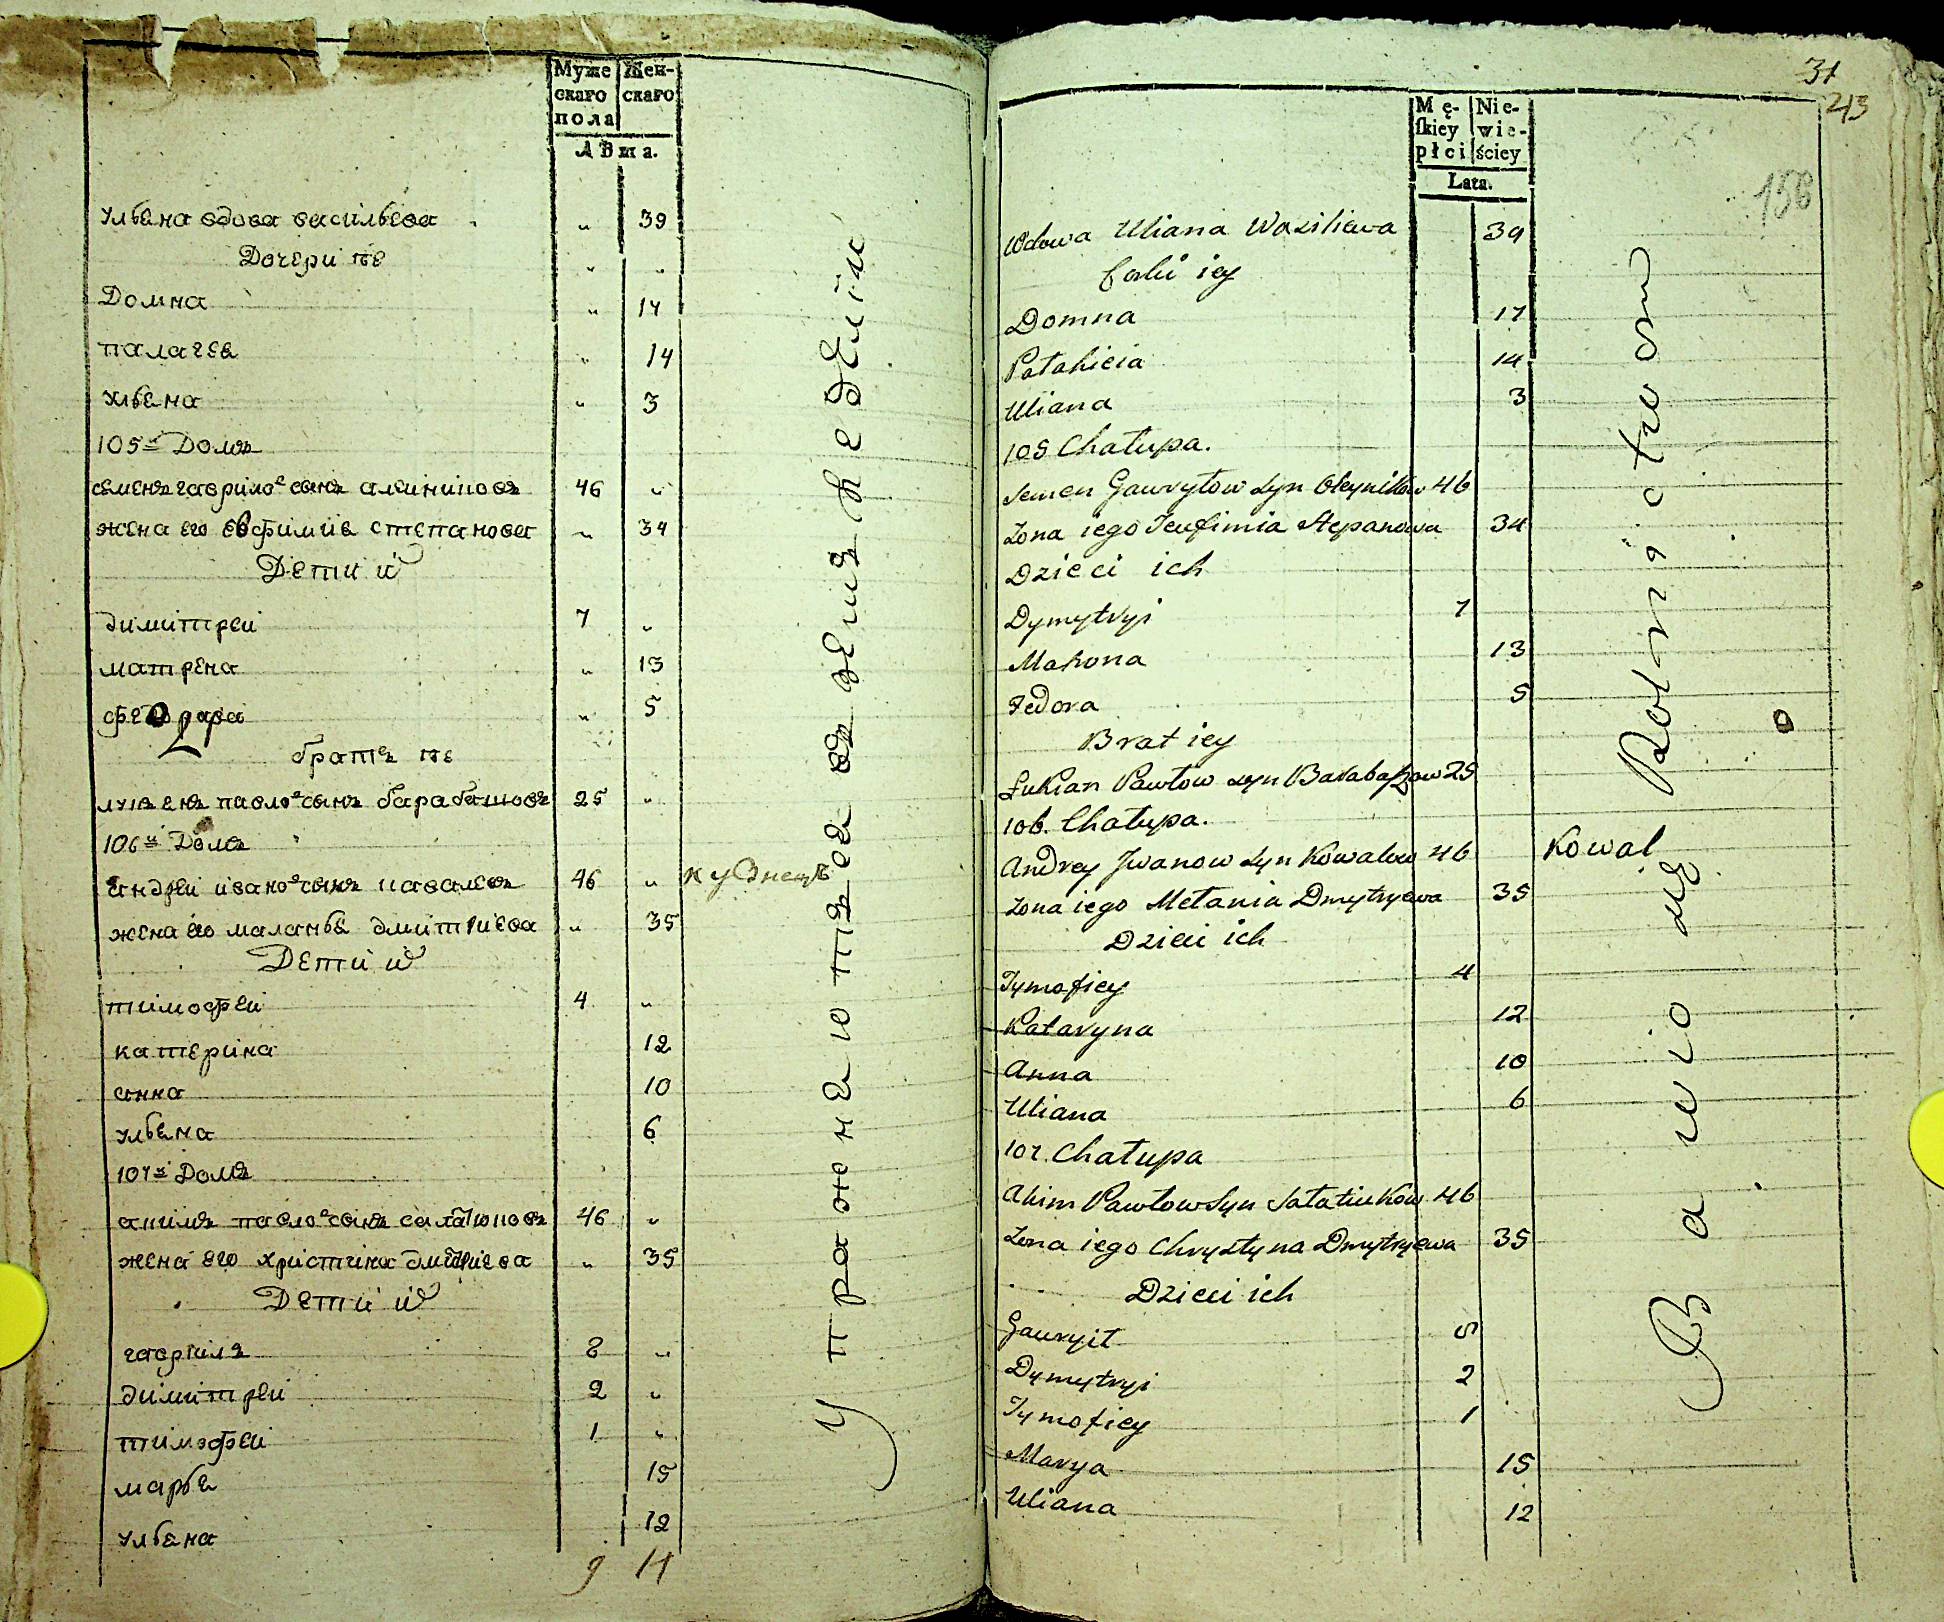 Муже Жен-
скаго скаго
пола
Лѣта.
Ульяна вдова васильева „ 39
Дочери ѣе „ „
Домна „ 17
палагея „ 14
ульяна „ 3
105й Домъ
семенъ гаврилов сынъ алейниковъ 46 „
жена его евфимия степанова „ 34
Дети и͏х
димитреи 7 „
матрена „ 13
федора „ 5
братъ ѣе
лукьенъ павлов сынъ барабашовъ 25 „
106й Домъ
андреи иванов сынъ кавалевъ 46 „ кузнецъ
жена его маланья дмитриева „ 35
Дети их
тимофеи 4 „
катерина 12
анна 10
ульяна 6
107й Домъ
акимъ павлов сынъ салатюковъ 46 „
жена его христина дмитриева „ 35
Дети их
гаврила 8 „
димитреи 2 „
тимофеи 1 „
марья 15
ульяна 12
9 14
Упражнаютца въ земленеделии
31
43
156
Mę- Nie-
skiey wie-
płci ściey
Lata.
Wdowa Uliana Wasiliewa 39
Corki iey
Domna 17
Palahieia 14
Uliana 3
105 Chałupa.
Semen Gawryłow syn Oleynikow 46
Zona iego Jeufimia Stepanowa 34
Dzieci ich
Dymytryi 7
Matrona 13
Fedora 5
Brat iey
Łukian Pawłow syn Barabaszow 25
106. Chałupa.
Andrey Jwanow syn Kowalew 46 Kowal
Zona iego Mełania Dmytryewa 35
Dzieci ich
Tymofiey 4
Kataryna 12
Anna 10
Uliana 6
107. Chałupa
Akim Pawłow syn Sałatiukow 46
Zona iego Chrystyna Dmytryewa 35
Dzieci ich
Gawryił 8
Dymytryi 2
Tymofiey 1
Marya 15
Uliana 12
Bawio się Rolnictwom